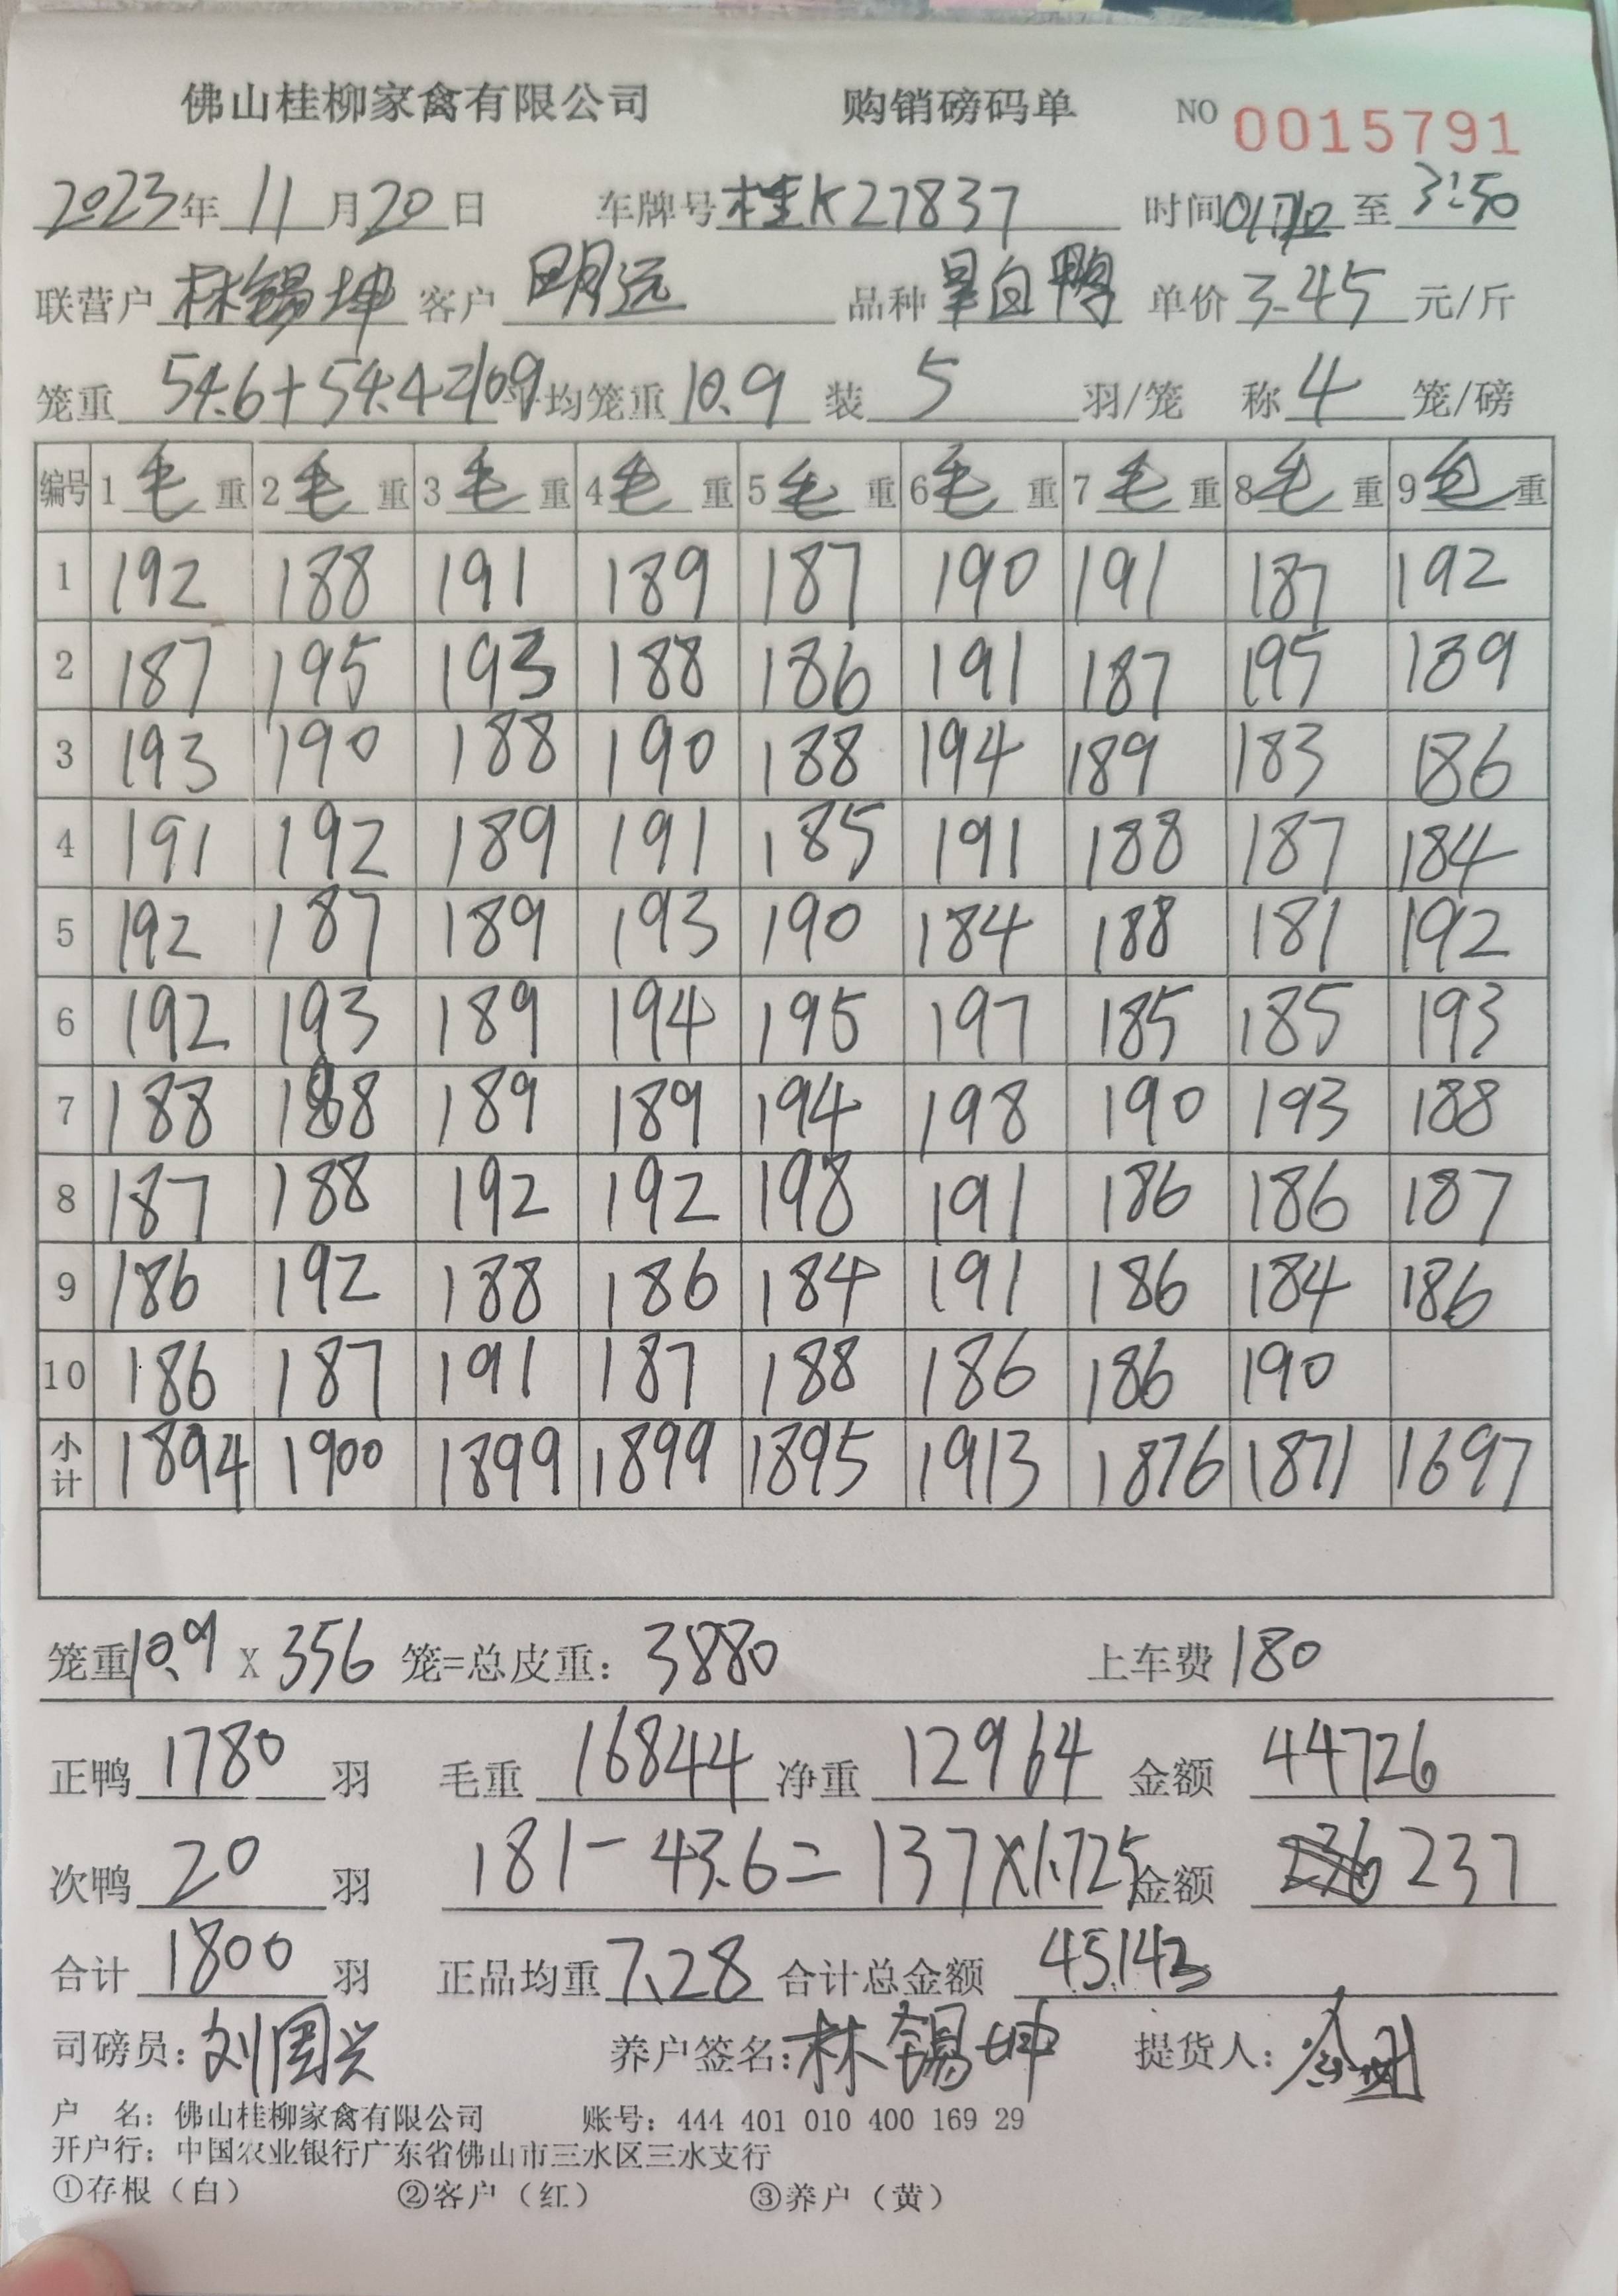 佛山桂柳家禽有限公司 购销磅码单 NO 0015791
2023年 11月20日 车牌号 桂K27837 时间 至 3:50
联营户 林锡坤 客户 明远 品种 白鸭 单价 3.45 元/斤
笼重 54.6+54.4=109 平均笼重 10.9 装 5 羽/笼 称 4 笼/磅
编号 1 毛 重 2 毛 重 3 毛 重 4 毛 重 5 毛 重 6 毛 重 7 毛 重 8 毛 重 9 毛 重
1 192 188 191 189 187 190 191 187 192
2 187 195 193 188 186 191 187 195 189
3 193 190 188 190 188 194 189 183 186
4 191 192 189 191 185 191 188 187 184
5 192 187 189 193 190 184 188 181 192
6 192 193 189 194 195 197 185 185 193
7 188 188 189 189 194 198 190 193 188
8 187 188 192 192 198 191 186 186 187
9 186 192 188 186 184 191 186 184 186
10 186 187 191 187 188 186 186 190
小计 1894 1900 1899 1899 1895 1913 1876 1871 1697
笼重 10.9 X 356 笼=总皮重: 3880 上车费 180
正鸭 1780 羽 毛重 16844 净重 12964 金额 44726
次鸭 20 羽 181-43.6=137×1.725 金额 237
合计 1800 羽 正品均重 7.28 合计总金额 45143
司磅员: 刘国兴 养户签名: 林锡坤 提货人:
户 名: 佛山桂柳家禽有限公司 账号: 444 401 010 400 169 29
开户行: 中国农业银行广东省佛山市三水区三水支行
①存根(白) ②客户(红) ③养户(黄)